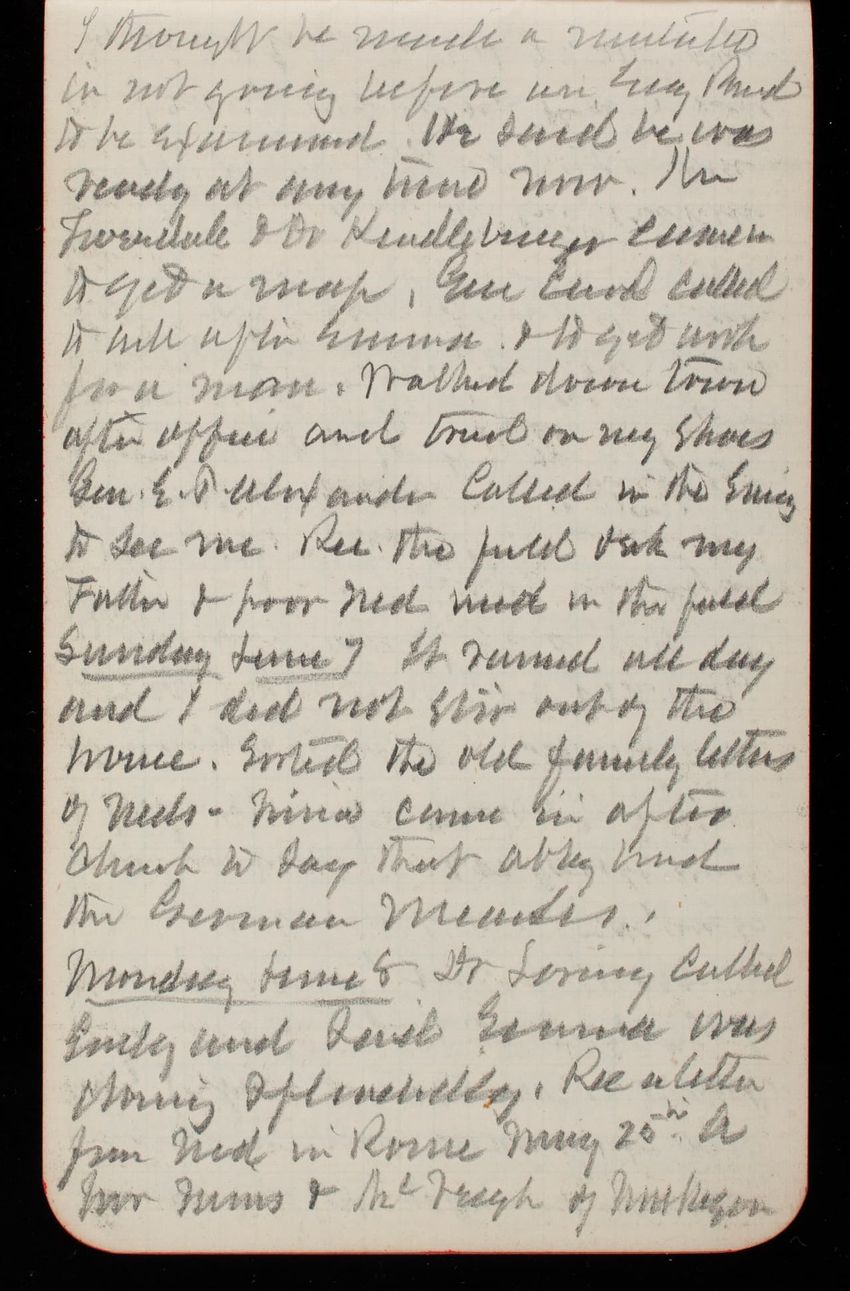 I thought he made a mistake
in not going before an Exg Board
to be examined. He said he was
ready at any time now. Mr
Truesdale & Dr Kindleberger came in
to get a map, Gen Card called
to ask after Emma. & to get work
for a man. Walked down town
after office and tried on my shoes
Gen. E. P. Alexander Called in the Eving
to see me. Rec. the field desk my
Father & poor Ned used in the field
Sunday June 7 It rained all day
and I did not stir out of the
house. Sorted the old family letters
of Neds - Nina came in after
Church to say that abby had
the German Measles.
Monday June 8 Dr Loring Called
Early and said Emma was
doing splendidly. Rec a letter
from Ned in Rome May 25th. A
& Mc of Muskegon